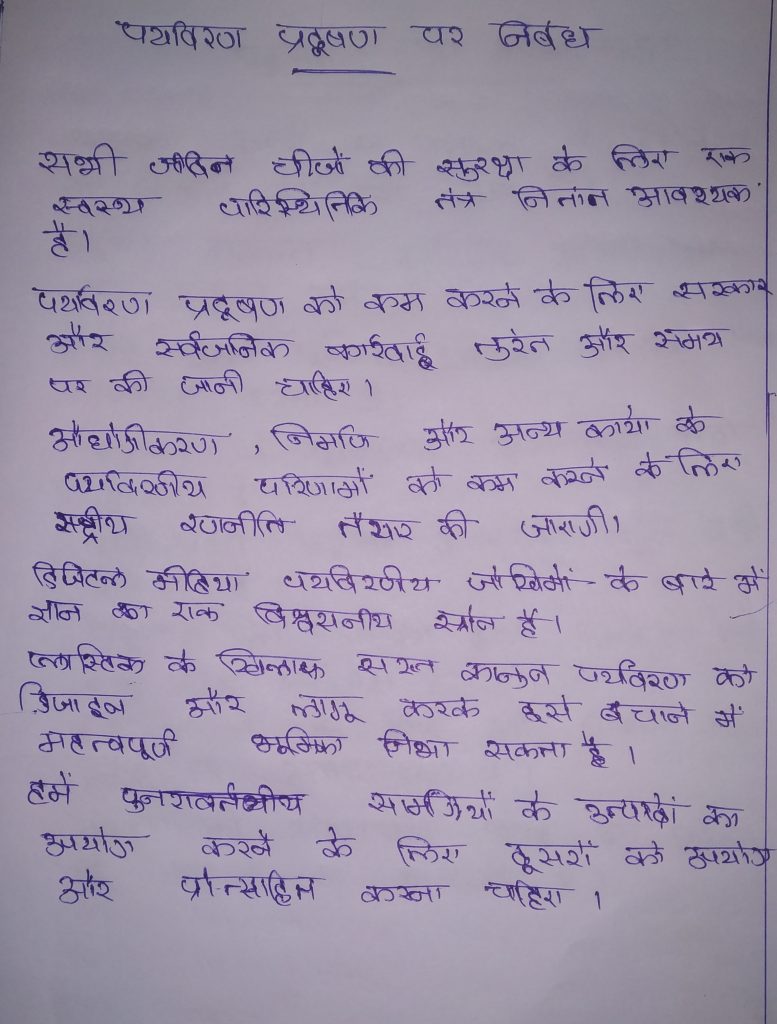 पर्यावरण प्रदूषण पर निबंध
सभी जीवित चीजों की सुरक्षा के लिए एक
स्वस्थ पारिस्थितिकि तंत्र नितांत आवश्यक
है।
पर्यावरण प्रदूषण को कम करने के लिए सरकार
और सर्वजनिक कार्रवाई तुरंत और समय
पर की जानी चाहिए।
औद्योगीकरण , निर्माण और अन्य कार्यो के
पर्यावरणीय परिणामों को कम करने के लिए
राष्ट्रीय रणनीति तैयार की जाएगी।
डिजिटल मीडिया पर्यावरणीय जोखिमों के बारे में
ज्ञान का एक विश्वसनीय स्त्रोत है।
प्लास्टिक के खिलाफ सख्त कानुन पर्यावरण को
डिजाइन और लागू करके इसे बचाने में
महत्वपूर्ण भूमिका निभा सकता है ।
हमें पुनरावर्तनीय सामग्रियों के उत्पादों का
उपयोग करने के लिए दूसरों को उपयोग
और प्रोत्साहित करना चाहिए ।